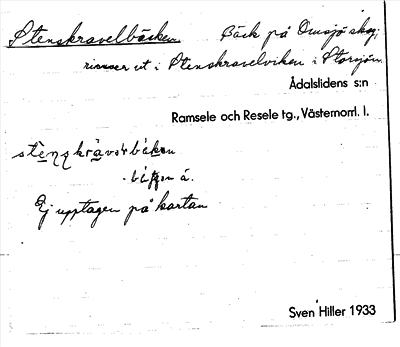 Stenskravelbäcken Bäck på Omsjö skog;
rinner ut i Stenskravelviken i Storsjön.
Ådalslidens s:n
Ramsele och Resele tg., Västernorrl. l.
Ej upptagen på kartan
Sven Hiller 1933